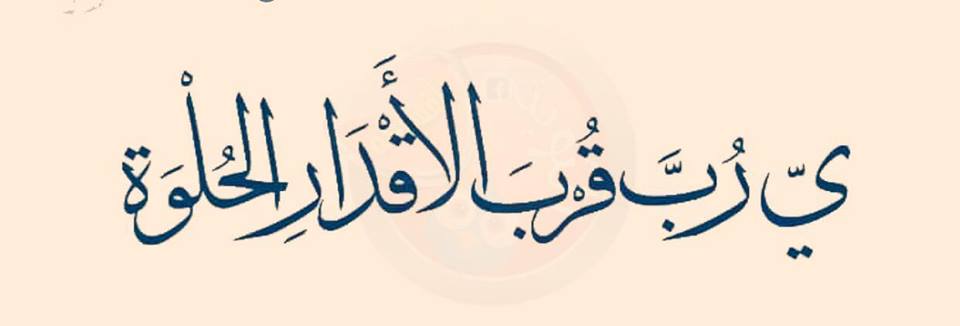 يّ رُبَّ قُرْبَ الأَقْدَارِ الحُلْوَة